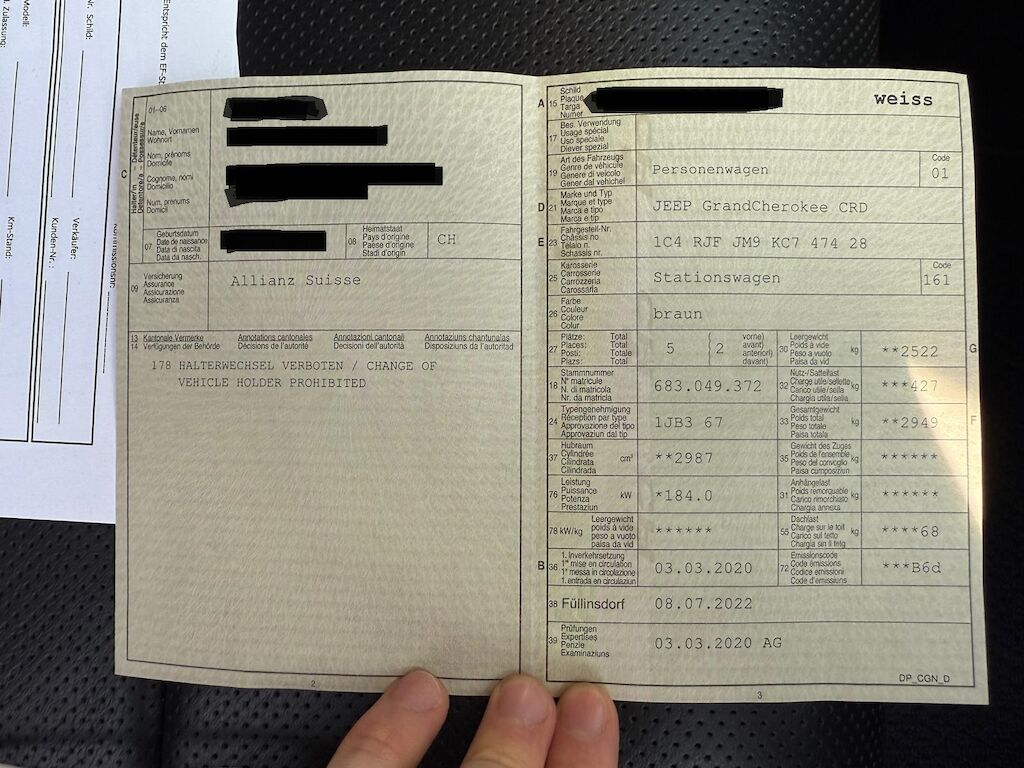 Entspricht dem EF-St
Nr. Schild:
Modell:
l. Zulassung:
Verkäufer:
Kunden-Nr.:
Km-Stand:
01-06
C
Halter/in – Détenteur/euse
Detentore/a – Possessura
Name, Vornamen
Wohnort
Nom, prénoms
Domicile
Cognome, nomi
Domicilio
Num, prenums
Domicil
07
Geburtsdatum
Date de naissance
Data di nascita
Data da nasch.
08
Heimatstaat
Pays d'origine
Paese d'origine
Stadi d'origin
CH
09
Versicherung
Assurance
Assicurazione
Assicuranza
Allianz Suisse
13 Kantonale Vermerke Annotations cantonales Annotazioni cantonali Annotaziuns chantunalas
14 Verfügungen der Behörde Décisions de l'autorité Decisioni dell'autorità Disposiziuns da l'autoritad
178 HALTERWECHSEL VERBOTEN / CHANGE OF
VEHICLE HOLDER PROHIBITED
2
A 15
Schild
Plaque
Targa
Numer
weiss
17
Bes. Verwendung
Usage spécial
Uso speciale
Diever spezial
19
Art des Fahrzeugs
Genre de véhicule
Genere di veicolo
Gener dal vehichel
Personenwagen
Code
01
D 21
Marke und Typ
Marque et type
Marca e tipo
Marca e tip
JEEP GrandCherokee CRD
E 23
Fahrgestell-Nr.
Châssis no
Telaio n.
Schassis nr.
1C4 RJF JM9 KC7 474 28
25
Karosserie
Carrosserie
Carrozzeria
Carossaria
Stationswagen
Code
161
26
Farbe
Couleur
Colore
Colur
braun
27
Plätze: Total
Places: Total
Posti: Totale
Plazs: Total
5 2
vorne)
avant)
anteriori)
davant)
30
Leergewicht
Poids à vide
Peso a vuoto
Paisa da vid
kg
**2522
G
18
Stammnummer
N° matricule
N. di matricola
Nr. da matricla
683.049.372
32
Nutz-/Sattellast
Charge utile/sellette
Carico utile/sella
Chargia utila/sella
kg
***427
24
Typengenehmigung
Réception par type
Approvazione del tipo
Approvaziun dal tip
1JB3 67
33
Gesamtgewicht
Poids total
Peso totale
Paisa totala
kg
**2949
F
37
Hubraum
Cylindrée
Cilindrata
Cilindrada
cm³
**2987
35
Gewicht des Zuges
Poids de l'ensemble
Peso del convoglio
Paisa cumposiziun
kg
******
76
Leistung
Puissance
Potenza
Prestaziun
kW
*184.0
31
Anhängelast
Poids remorquable
Carico rimorchiato
Chargia annexa
kg
******
78 kW/kg
Leergewicht
poids à vide
peso a vuoto
paisa da vid
******
55
Dachlast
Charge sur le toit
Carico sul tetto
Chargia sin il tetg
kg
****68
B 36
1. Inverkehrsetzung
1re mise en circulation
1a messa in circolazione
1. entrada en circulaziun
03.03.2020
72
Emissionscode
Code émissions
Codice emissioni
Code d'emissiuns
***B6d
38 Füllinsdorf
08.07.2022
39
Prüfungen
Expertises
Perizie
Examinaziuns
03.03.2020 AG
DP_CGN_D
3